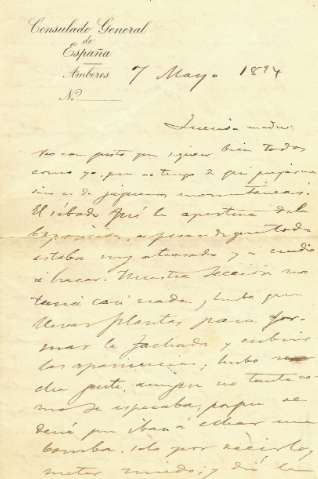 Consulado General
de
España
Amberes
Nº
7 Mayo 1894
Querida madre:
Veo con gusto que siguen bien todos
como yo, pues no tengo de que quejarme
sino es de jaquecas momentáneas.
El sábado fué la apertura de la
Exposición, a pesar de que todo
estaba muy atrasado y a medio
hacer. Nuestra Sección no
tenía casi nada, hubo que
llevar plantas para for-
mar la fachada y cubrir
las apariencias; hubo mu-
cha gente, aunque no tanta co-
mo se esperaba, porque se
decía que iban á echar una
bomba, solo por decirlo,
meter miedo; y dió la